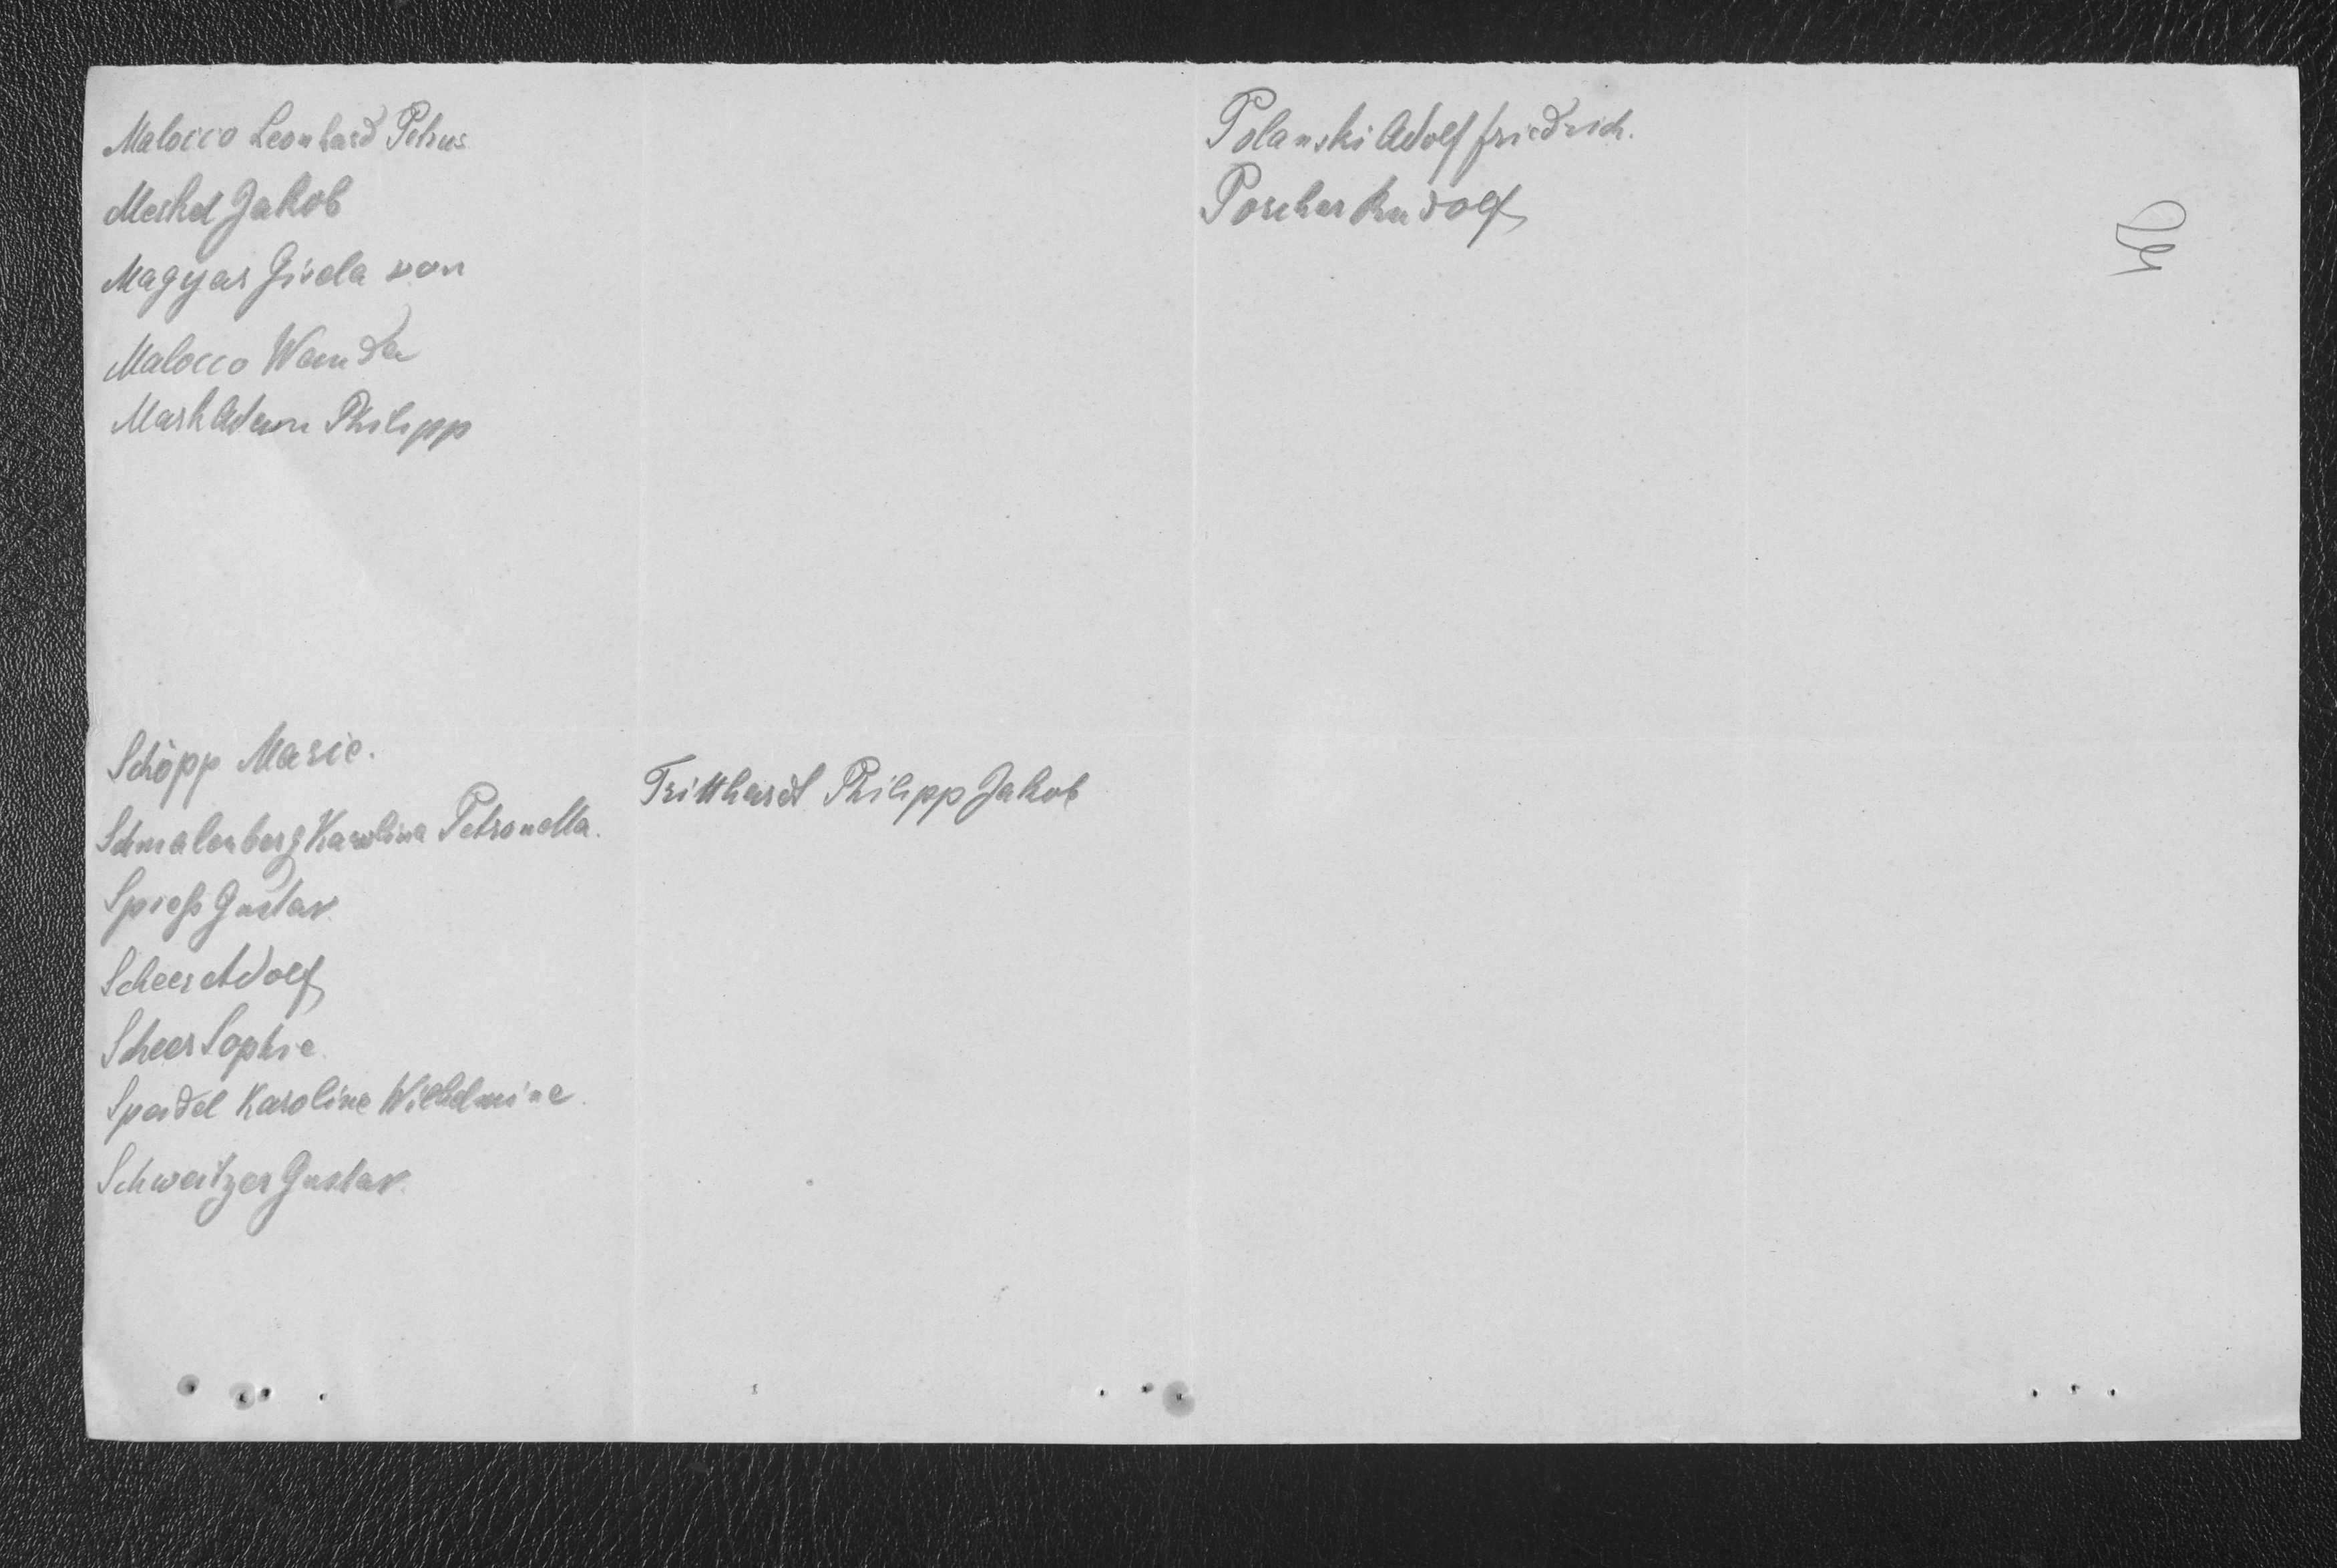 Malocco Leonhard Petrus
Merkel Jakob
Magyar Gisela von
Malocco Wanda
Mark Adam Philipp
Polanski Adolf Friedrich.
Porcher Rudolf
Schöpp Marie.
Schmalenberg Karolina Petronella.
Spieß Gustav.
Scheer Adolf
Scheer Sophie.
Speidel Karoline Wilhelmine.
Schweitzer Gustav.
Tritthardt Philipp Jakob